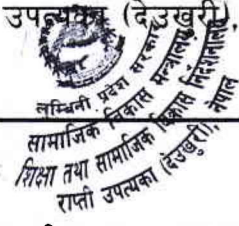 उपत्यका (देउखुरी),
लुम्बिनी प्रदेश सरकार
सामाजिक विकास मन्त्रालय
शिक्षा तथा सामाजिक विकास निर्देशनालय
राप्ती उपत्यका (देउखुरी), नेपाल